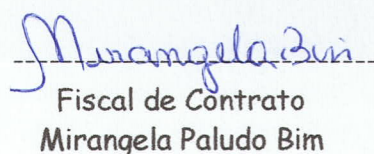 Mirangela Bim
Fiscal de Contrato
Mirangela Paludo Bim